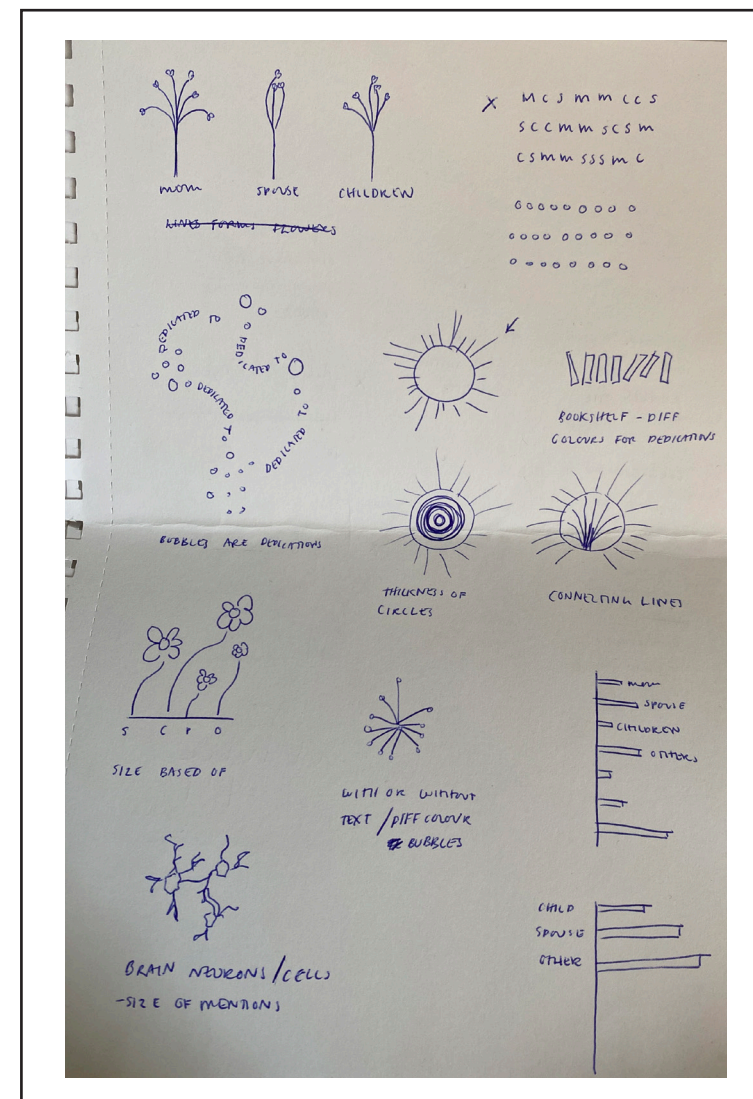 MOM
SPOUSE
CHILDREN
LINES FORMS FLOWERS
X
M C S M M C C S
S C C M M S C S M
C S M M S S S M C
DEDICATED TO
DEDICATED TO
DEDICATED TO
DEDICATED TO
BUBBLES ARE DEDICATIONS
BOOKSHELF - DIFF
COLOURS FOR DEDICATIONS
THICKNESS OF
CIRCLES
CONNECTING LINES
S C P O
SIZE BASED OF
WITH OR WITHOUT
TEXT / DIFF COLOUR
BUBBLES
MOM
SPOUSE
CHILDREN
OTHERS
BRAIN NEURONS/CELLS
-SIZE OF MENTIONS
CHILD
SPOUSE
OTHER